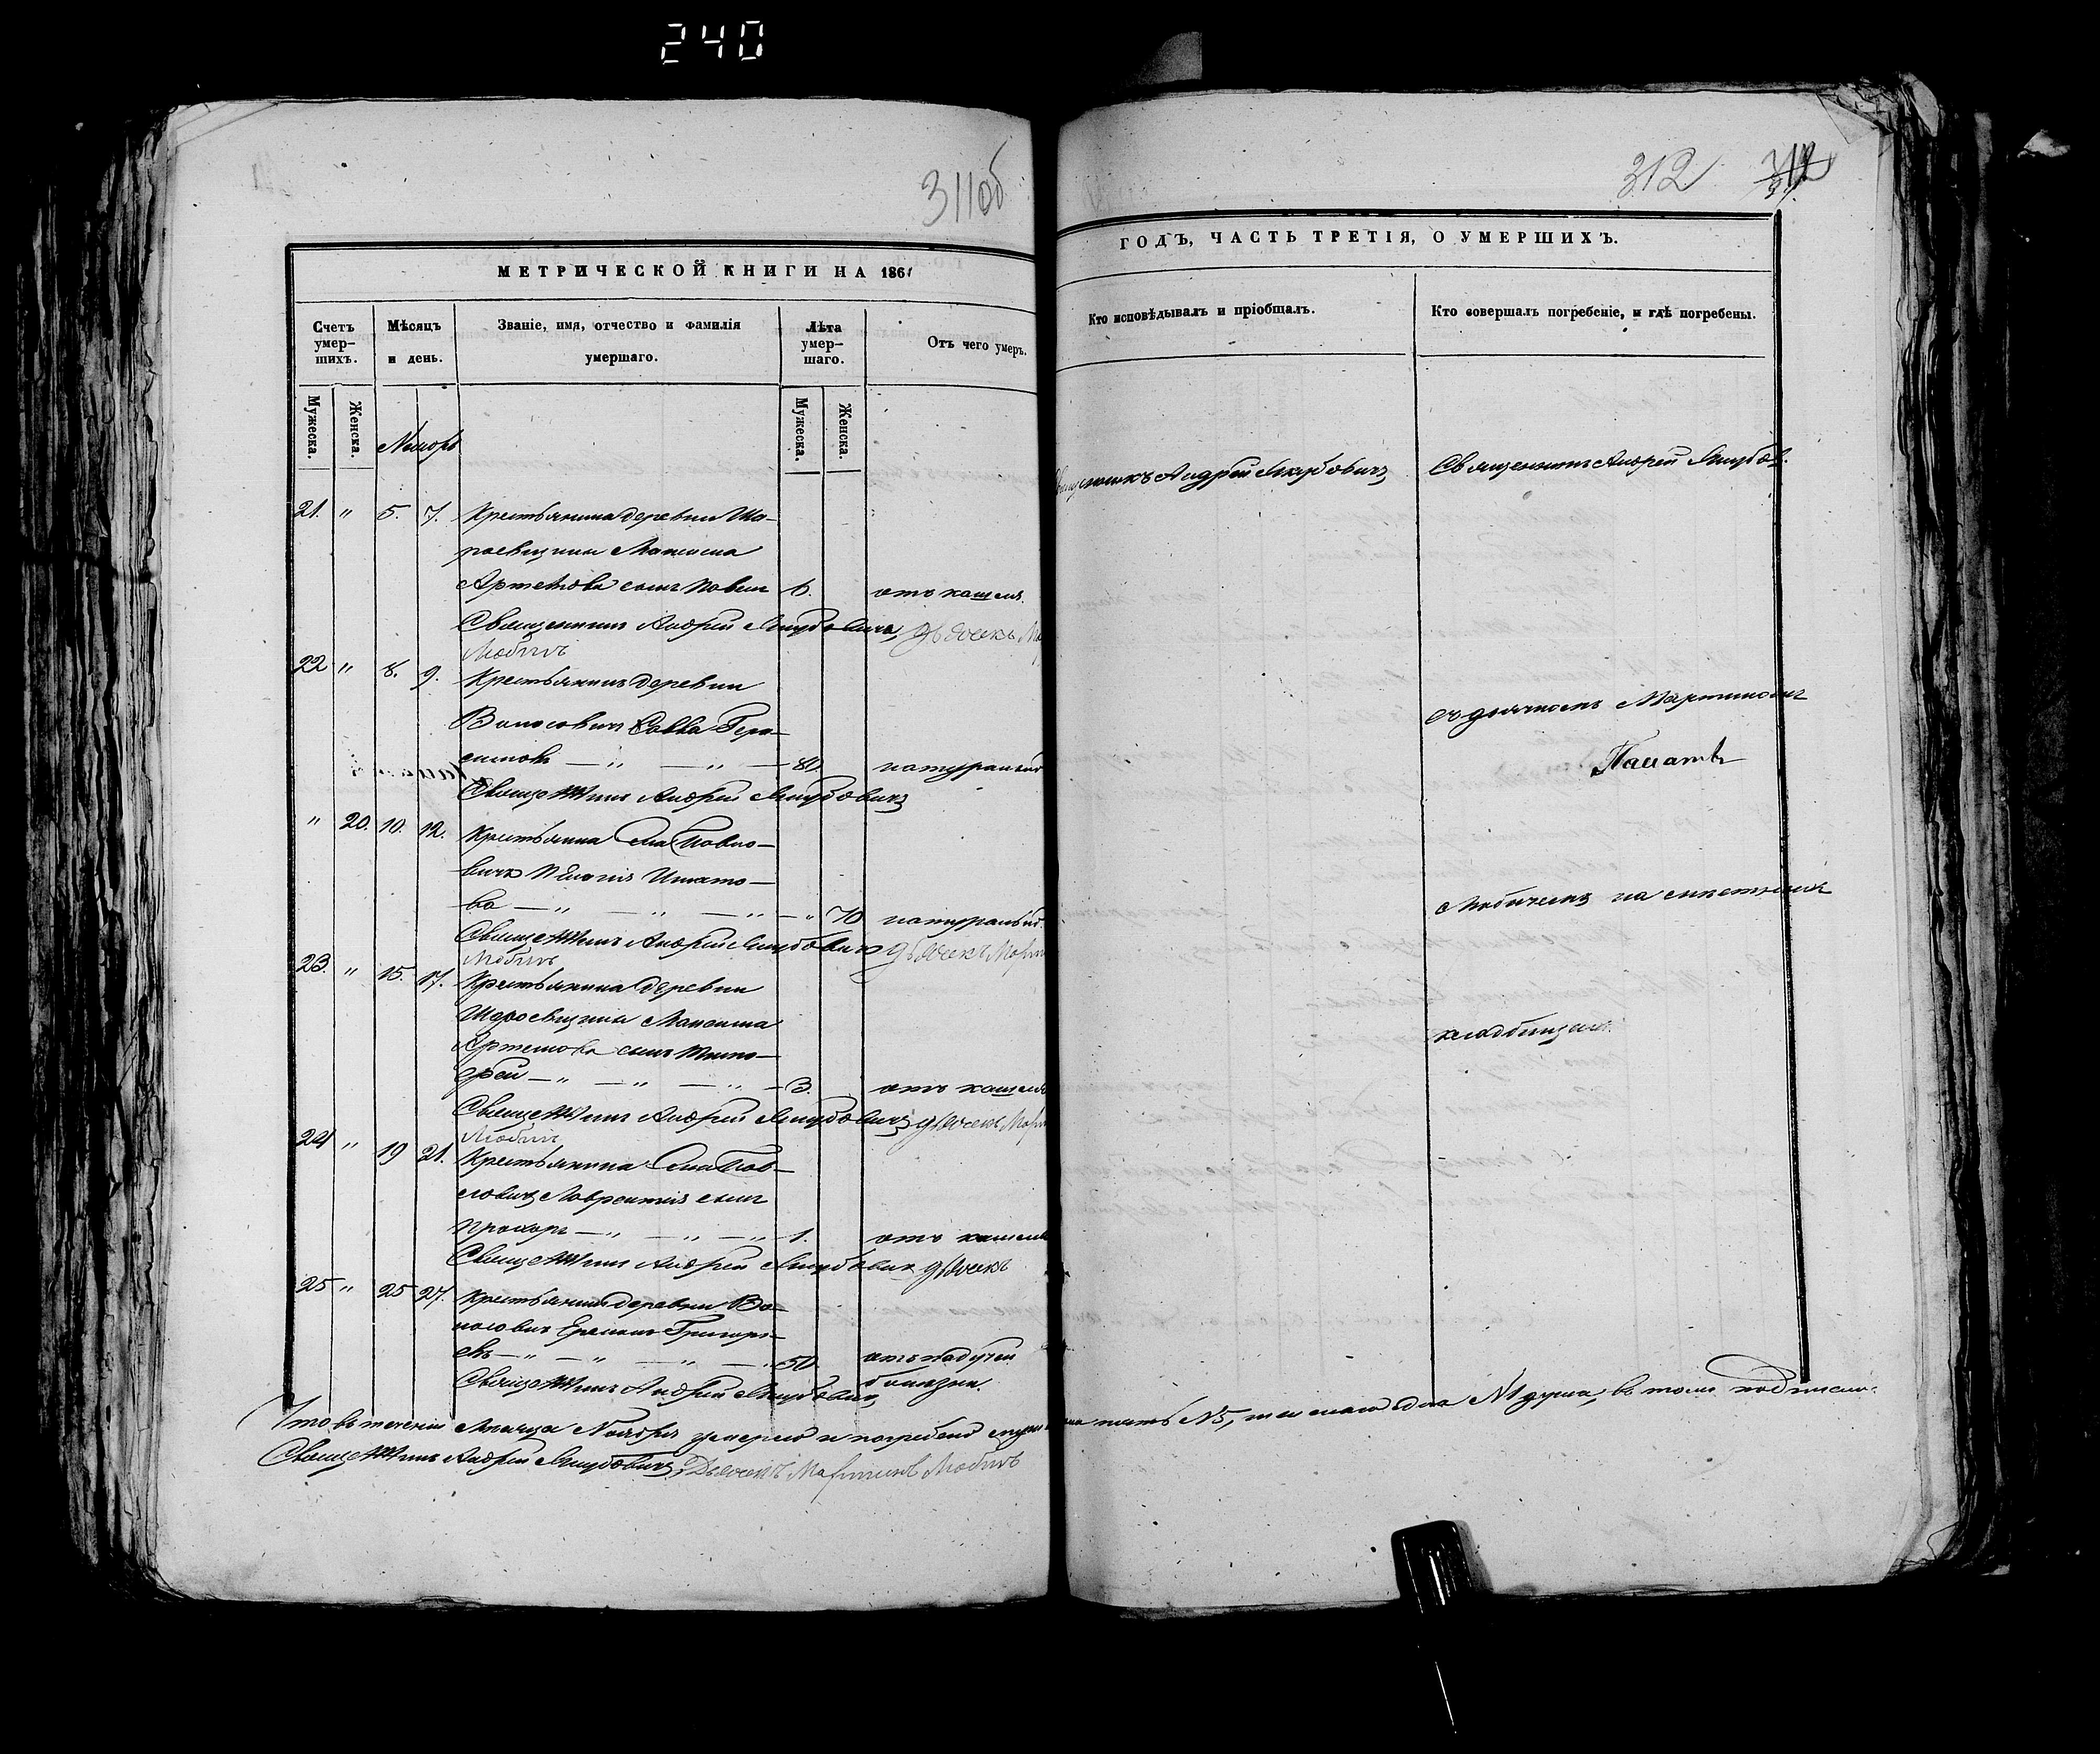 240
311об
МЕТРИЧЕСКОЙ КНИГИ НА 1861
Счетъ умер-шихъ.
Мѣсяцъ и день.
Званіе, имя, отчество и фамилія умершаго.
Лѣта умер-шаго.
Отъ чего умеръ.
Мужеска.
Женска.
Мужеска.
Женска.
Ноябрь
21. " 5. 7. Крестьянина деревни Ша-
раевщины Максима
Артемова сынъ Павелъ 6. отъ кашля.
Священникъ Андрей Якубовичъ, Дьячекъ
Любичъ
22 " 8. 9. Крестьянинъ деревни
Волосовичъ Савва Гера-
симовъ — " — " — 80. натуральной
Священникъ Андрей Якубовичъ
" 20. 10. 12. Крестьянка Села Павло-
вичъ Пелагія Игнато-
ва — " — " — " — " 70 натуральной.
Священникъ Андрей Якубовичъ Дьячекъ
Любичъ
23. " 15. 17. Крестьянина деревни
Шараевщины Максима
Артемова сынъ Тимо-
фей — " — " — " — 3. отъ кашля
Священникъ Андрей Якубовичъ Дьячекъ
Любичъ
24 " 19 21. Крестьянина Села Пав-
ловичъ Лаврентія сынъ
Прохоръ — " — " — " 1. отъ кашля
Священникъ Андрей Якубовичъ Дьячекъ
25 " 25 27. Крестьянинъ деревни Во-
лосовичъ Григорь-
евъ — " — " — " — " 50. отъ падучей
болѣзни.
Священникъ Андрей Якубовичъ,
Что въ теченіи Мѣсяца Ноября умерло и погребено пять №5, одна №1 душа, въ томъ
Священникъ Андрей Якубовичъ, Дьячекъ Мартинъ Любичъ
312
ГОДЪ, ЧАСТЬ ТРЕТІЯ, О УМЕРШИХЪ.
Кто исповѣдывалъ и пріобщалъ.
Кто совершалъ погребеніе, и гдѣ погребены.
Священникъ Андрей Якубовичъ,
Священникъ Андрей Якубов.
съ дьячкомъ Мартиномъ
Любичемъ на
кладбищахъ.